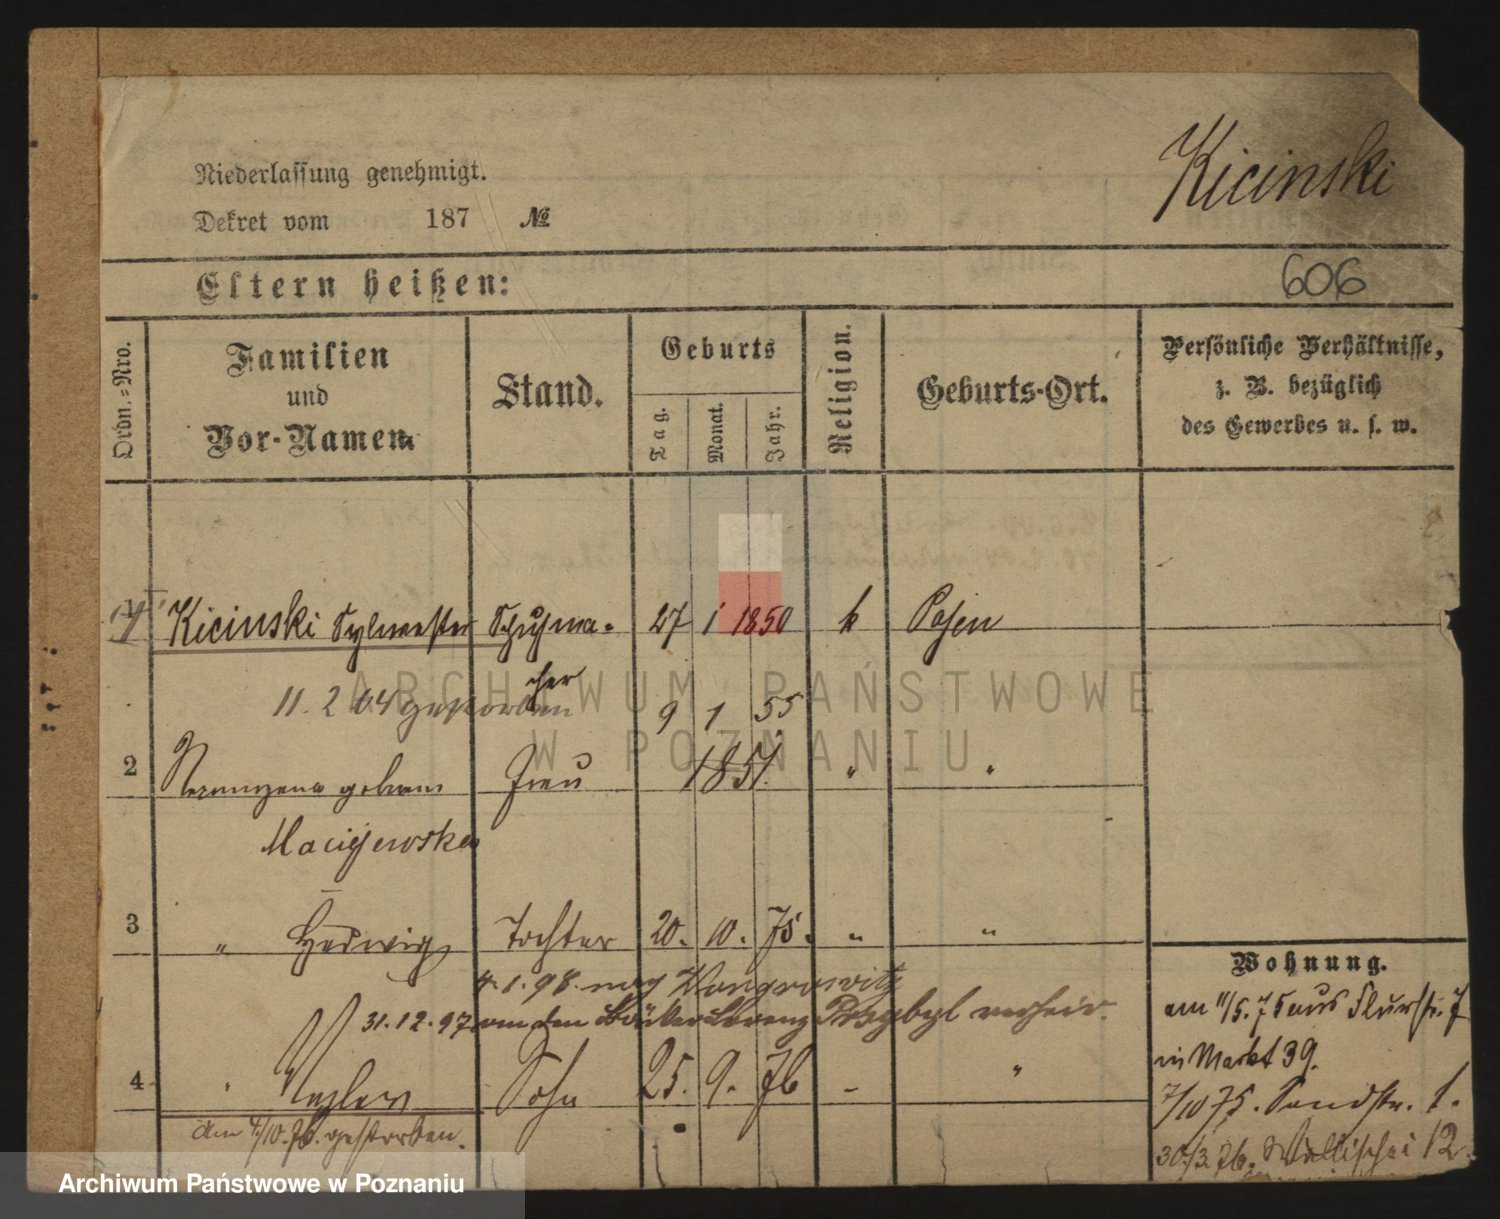 Kicinski
Niederlassung genehmigt.
Dekret vom 187 №
Eltern heißen:
606
Ordn.-Nro.
Familien
und
Vor-Namen.
Stand.
Geburts
Tag.
Monat.
Jahr.
Religion.
Geburts-Ort.
Persönliche Verhältnisse,
z. B. bezüglich
des Gewerbes u. s. w.
1 Kicinski Sylvester Schuhma- 27 1 1850 k Posen
cher
11. 2 04 gestorben 9 1 55
2 geborene Frau 1851. " "
Maciejewska
3 " Hedwig Tochter 20. 10. 75. " "
4.1.98. nach Wongrowitz
31.12.97 an den Bäcker Lorenz Przybyl verheir.
4 " Sohn 25. 9. 76 - "
am 4/10.76. gestorben.
Wohnung.
am 11/5.75 aus Flurstr. 7
in Markt 39.
7/10 75. Sandstr. 1.
30/3.76. Wallischei 12.
ARCHIWUM PAŃSTWOWE
W POZNANIU
Archiwum Państwowe w Poznaniu